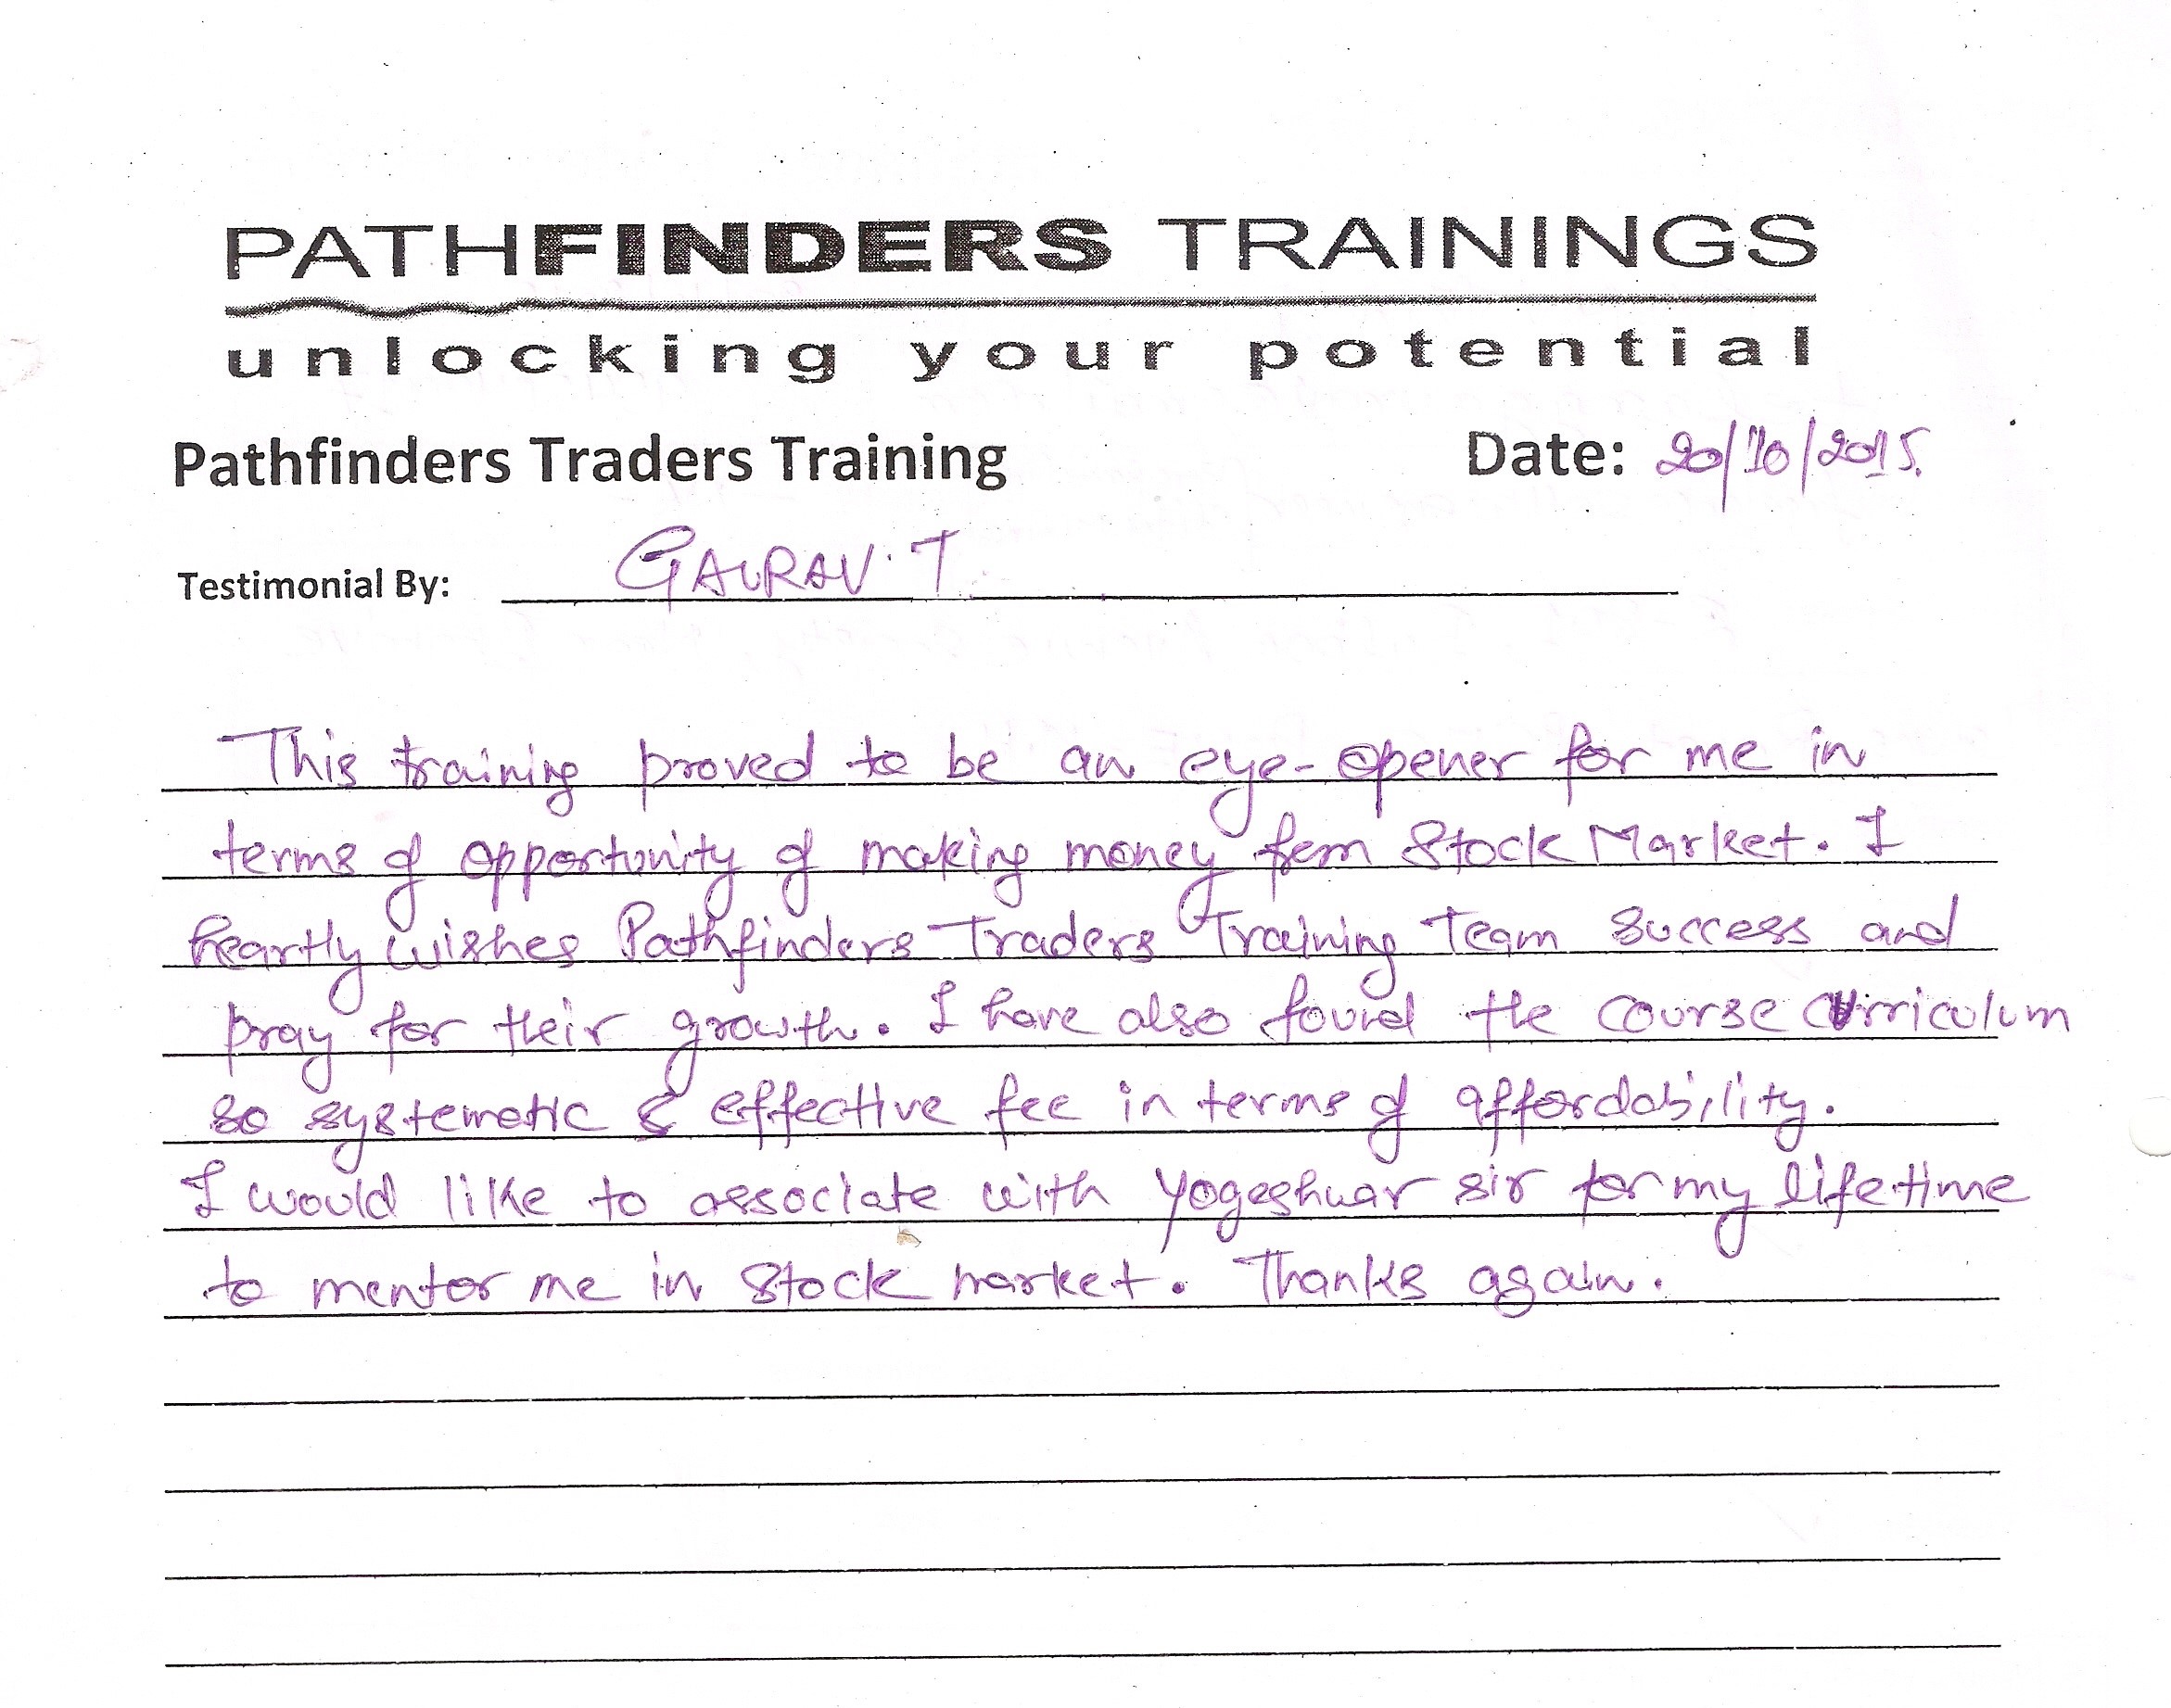 PATHFINDERS TRAININGS
unlocking your potential
Pathfinders Traders Training Date: 20/10/2015.
Testimonial By: GAURAV. T
This training proved to be an eye-opener for me in
terms of opportunity of making money fem Stock Market. I
heartly wishes Pathfinders Traders Training Team Success and
pray for their growth. I have also found the course curriculum
so systemetic & effective fee in terms of affordability.
I would like to associate with Yogeshwar sir for my lifetime
to mentor me in Stock market. Thanks again.